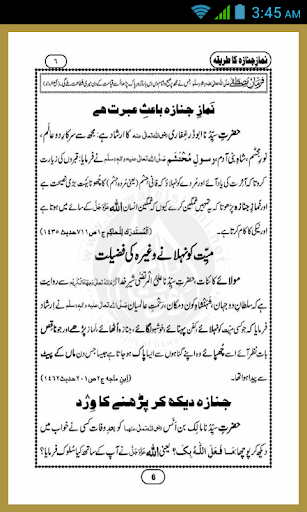 3:45 AM
نمازِ جنازہ کا طریقہ
٦
نمازِ جنازہ باعثِ عبرت ہے
حضرتِ سیِّدُنا ابوذر غِفاری رضی اللہ تعالٰی عنہ کا ارشاد ہے: مجھ سے سرکارِ دو عالم،
نورِ مُجَسَّم، شاہِ بنی آدم، رسولِ مُحتَشَم صلی اللہ تعالٰی علیہ والہ وسلم نے فرمایا: قبروں کی زیارت
کرو تاکہ آخرت کی یاد آئے اور مُردے کو نہلاؤ کہ فانی جِسْم (یعنی مُردہ جسم) کا چھونا بہت بڑی نصیحت ہے
اور نمازِ جنازہ پڑھو تاکہ یہ تمہیں غمگین کرے کیوں کہ غمگین انسان اللہ عَزَّوَجَلَّ کے سائے میں ہوتا ہے
اور نیکی کا کام کرتا ہے۔ (اَلْمُستَدرَک لِلْحاکِم ج ١ ص ٧١١ حدیث ١٤٣٥)
میِّت کو نہلانے وغیرہ کی فضیلت
مولائے کائنات، حضرتِ سیِّدُنا علیُّ المُرتَضٰی شیرِ خدا سے روایت
ہے کہ سلطانِ دو جہان، شَہَنشاہِ کون و مکان، رحمتِ عالمیان صلی اللہ تعالٰی علیہ والہ وسلم نے ارشاد
فرمایا کہ جو کسی میِّت کو نہلائے، کفن پہنائے، خوشبو لگائے، جنازہ اُٹھائے، نماز پڑھے اور جو ناقص
بات نظر آئے اسے چھپائے وہ اپنے گناہوں سے ایسا پاک ہو جاتا ہے جیسا جس دن ماں کے پیٹ
سے پیدا ہوا تھا۔ (ابنِ ماجہ ج ٢ ص ٢٠١ حدیث ١٤٦٢)
جنازہ دیکھ کر پڑھنے کا وِرْد
حضرتِ سیِّدُنا مالِک بن اَنَس رضی اللہ تعالٰی عنہ کو بعدِ وفات کسی نے خواب میں
دیکھ کر پوچھا: مَا فَعَلَ اللّٰہُ بِکَ؟ یعنی اللہ عَزَّوَجَلَّ نے آپ کے ساتھ کیا سُلوک فرمایا؟
6